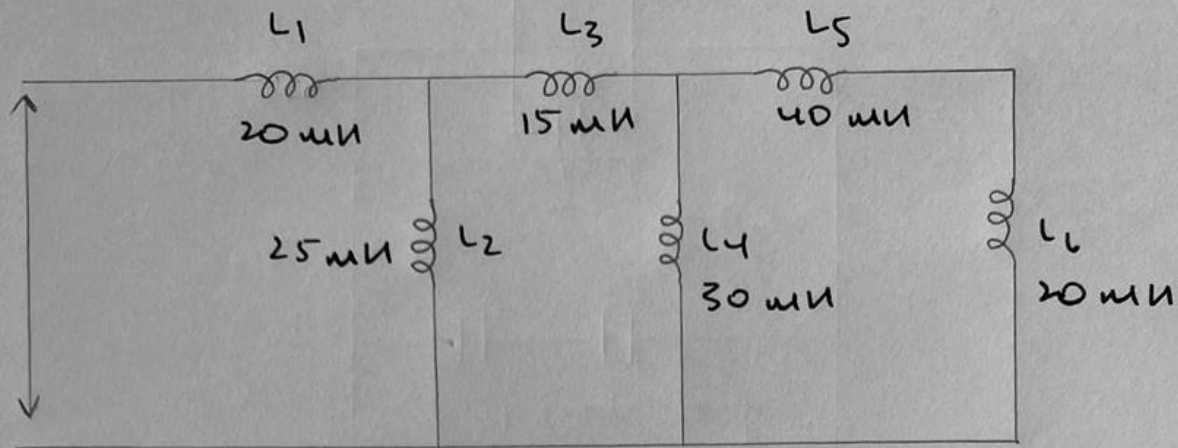 L1
L3
L5
20 mH
15 mH
40 mH
25 mH
L2
L4
30 mH
L6
20 mH